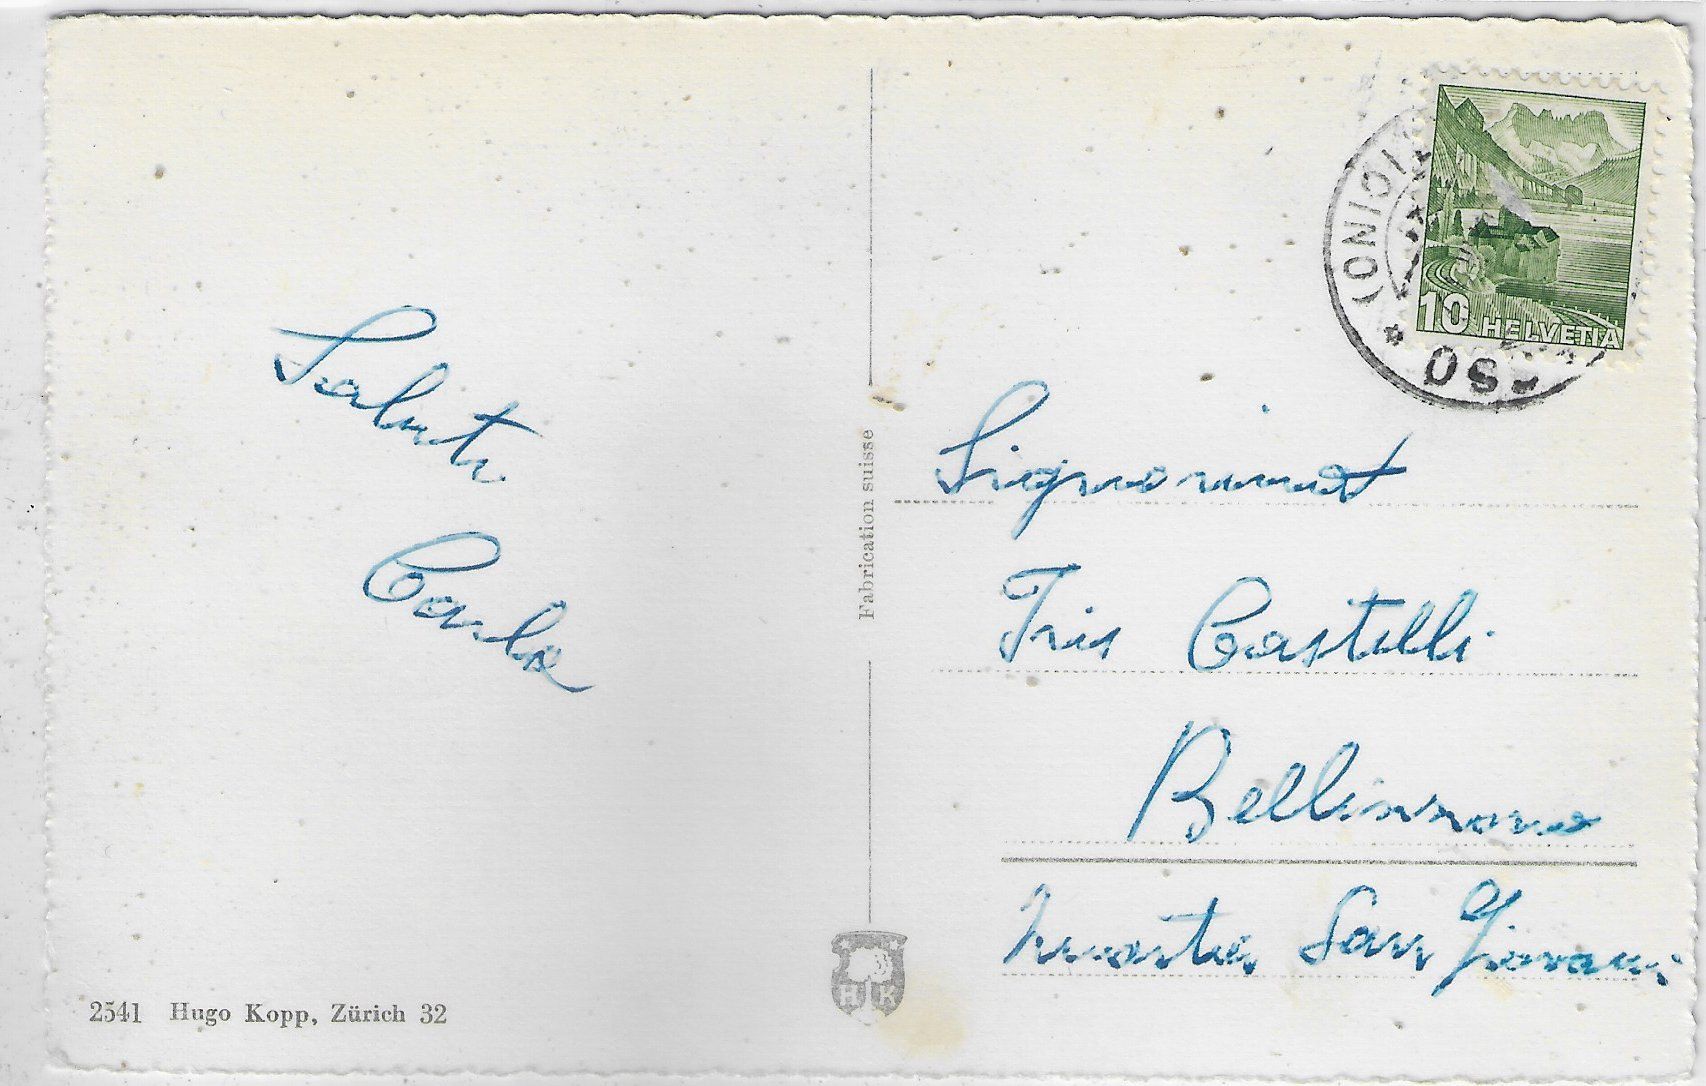 Saluti
Carla
2541 Hugo Kopp, Zürich 32
Fabrication suisse
HK
(TICINO)
10 HELVETIA
Signorina
Iris Castelli
Bellinzona
San Giovanni